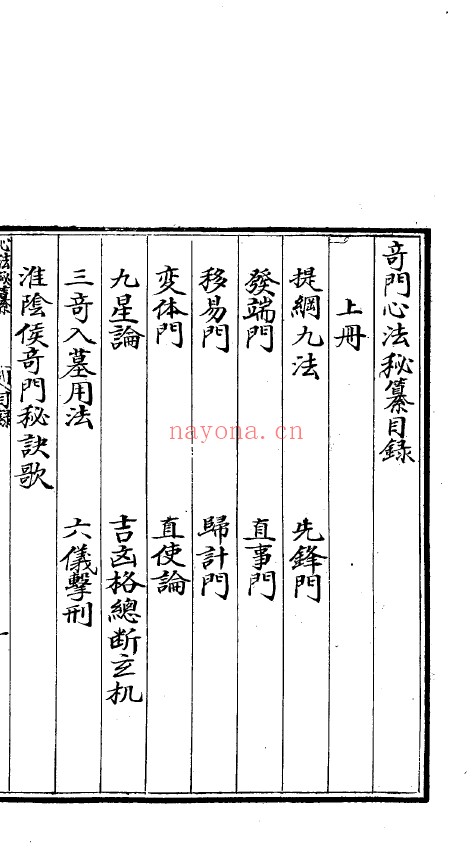 奇門心法秘纂目録
上册
提綱九法 先鋒門
發端門 直事門
移易門 歸計門
変体門 直使論
九星論 吉凶格總断玄机
三奇入墓用法 六儀擊刑
淮陰侯奇門秘訣歌
心法秘纂 目録 一
nayona.cn